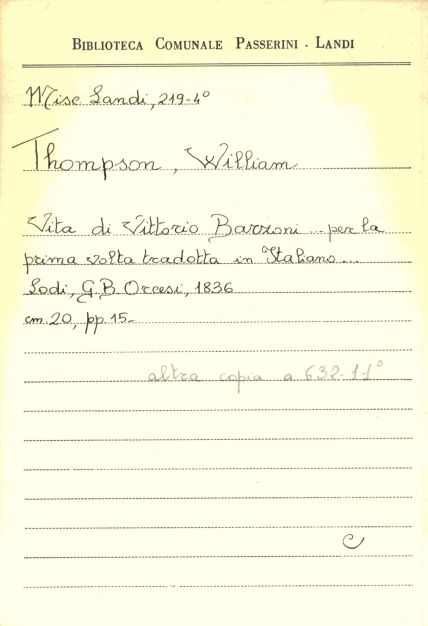 BIBLIOTECA COMUNALE PASSERINI - LANDI
Misc Landi, 219-4°
Thompson, William
Vita di Vittorio Barzoni ... per la
prima volta tradotta in Italiano ...
Lodi, G.B. Orcesi, 1836
cm. 20, pp. 15-
altra copia a 632-11°
C